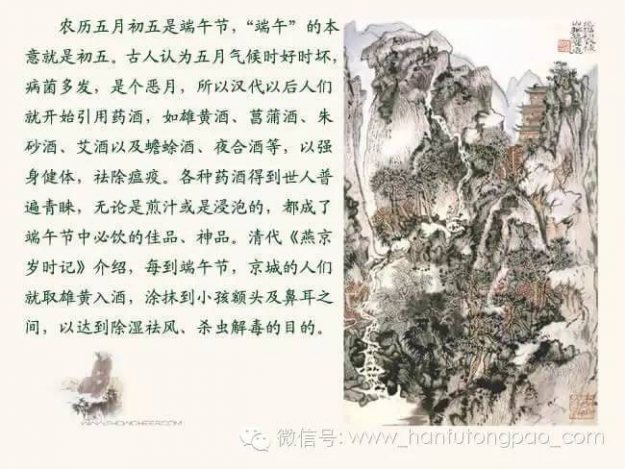 农历五月初五是端午节，“端午”的本
意就是初五。古人认为五月气候时好时坏，
病菌多发，是个恶月，所以汉代以后人们
就开始引用药酒，如雄黄酒、菖蒲酒、朱
砂酒、艾酒以及蟾蜍酒、夜合酒等，以强
身健体，祛除瘟疫。各种药酒得到世人普
遍青睐，无论是煎汁或是浸泡的，都成了
端午节中必饮的佳品、神品。清代《燕京
岁时记》介绍，每到端午节，京城的人们
就取雄黄入酒，涂抹到小孩额头及鼻耳之
间，以达到除湿祛风、杀虫解毒的目的。
微信号: www_hanfutongpao_com